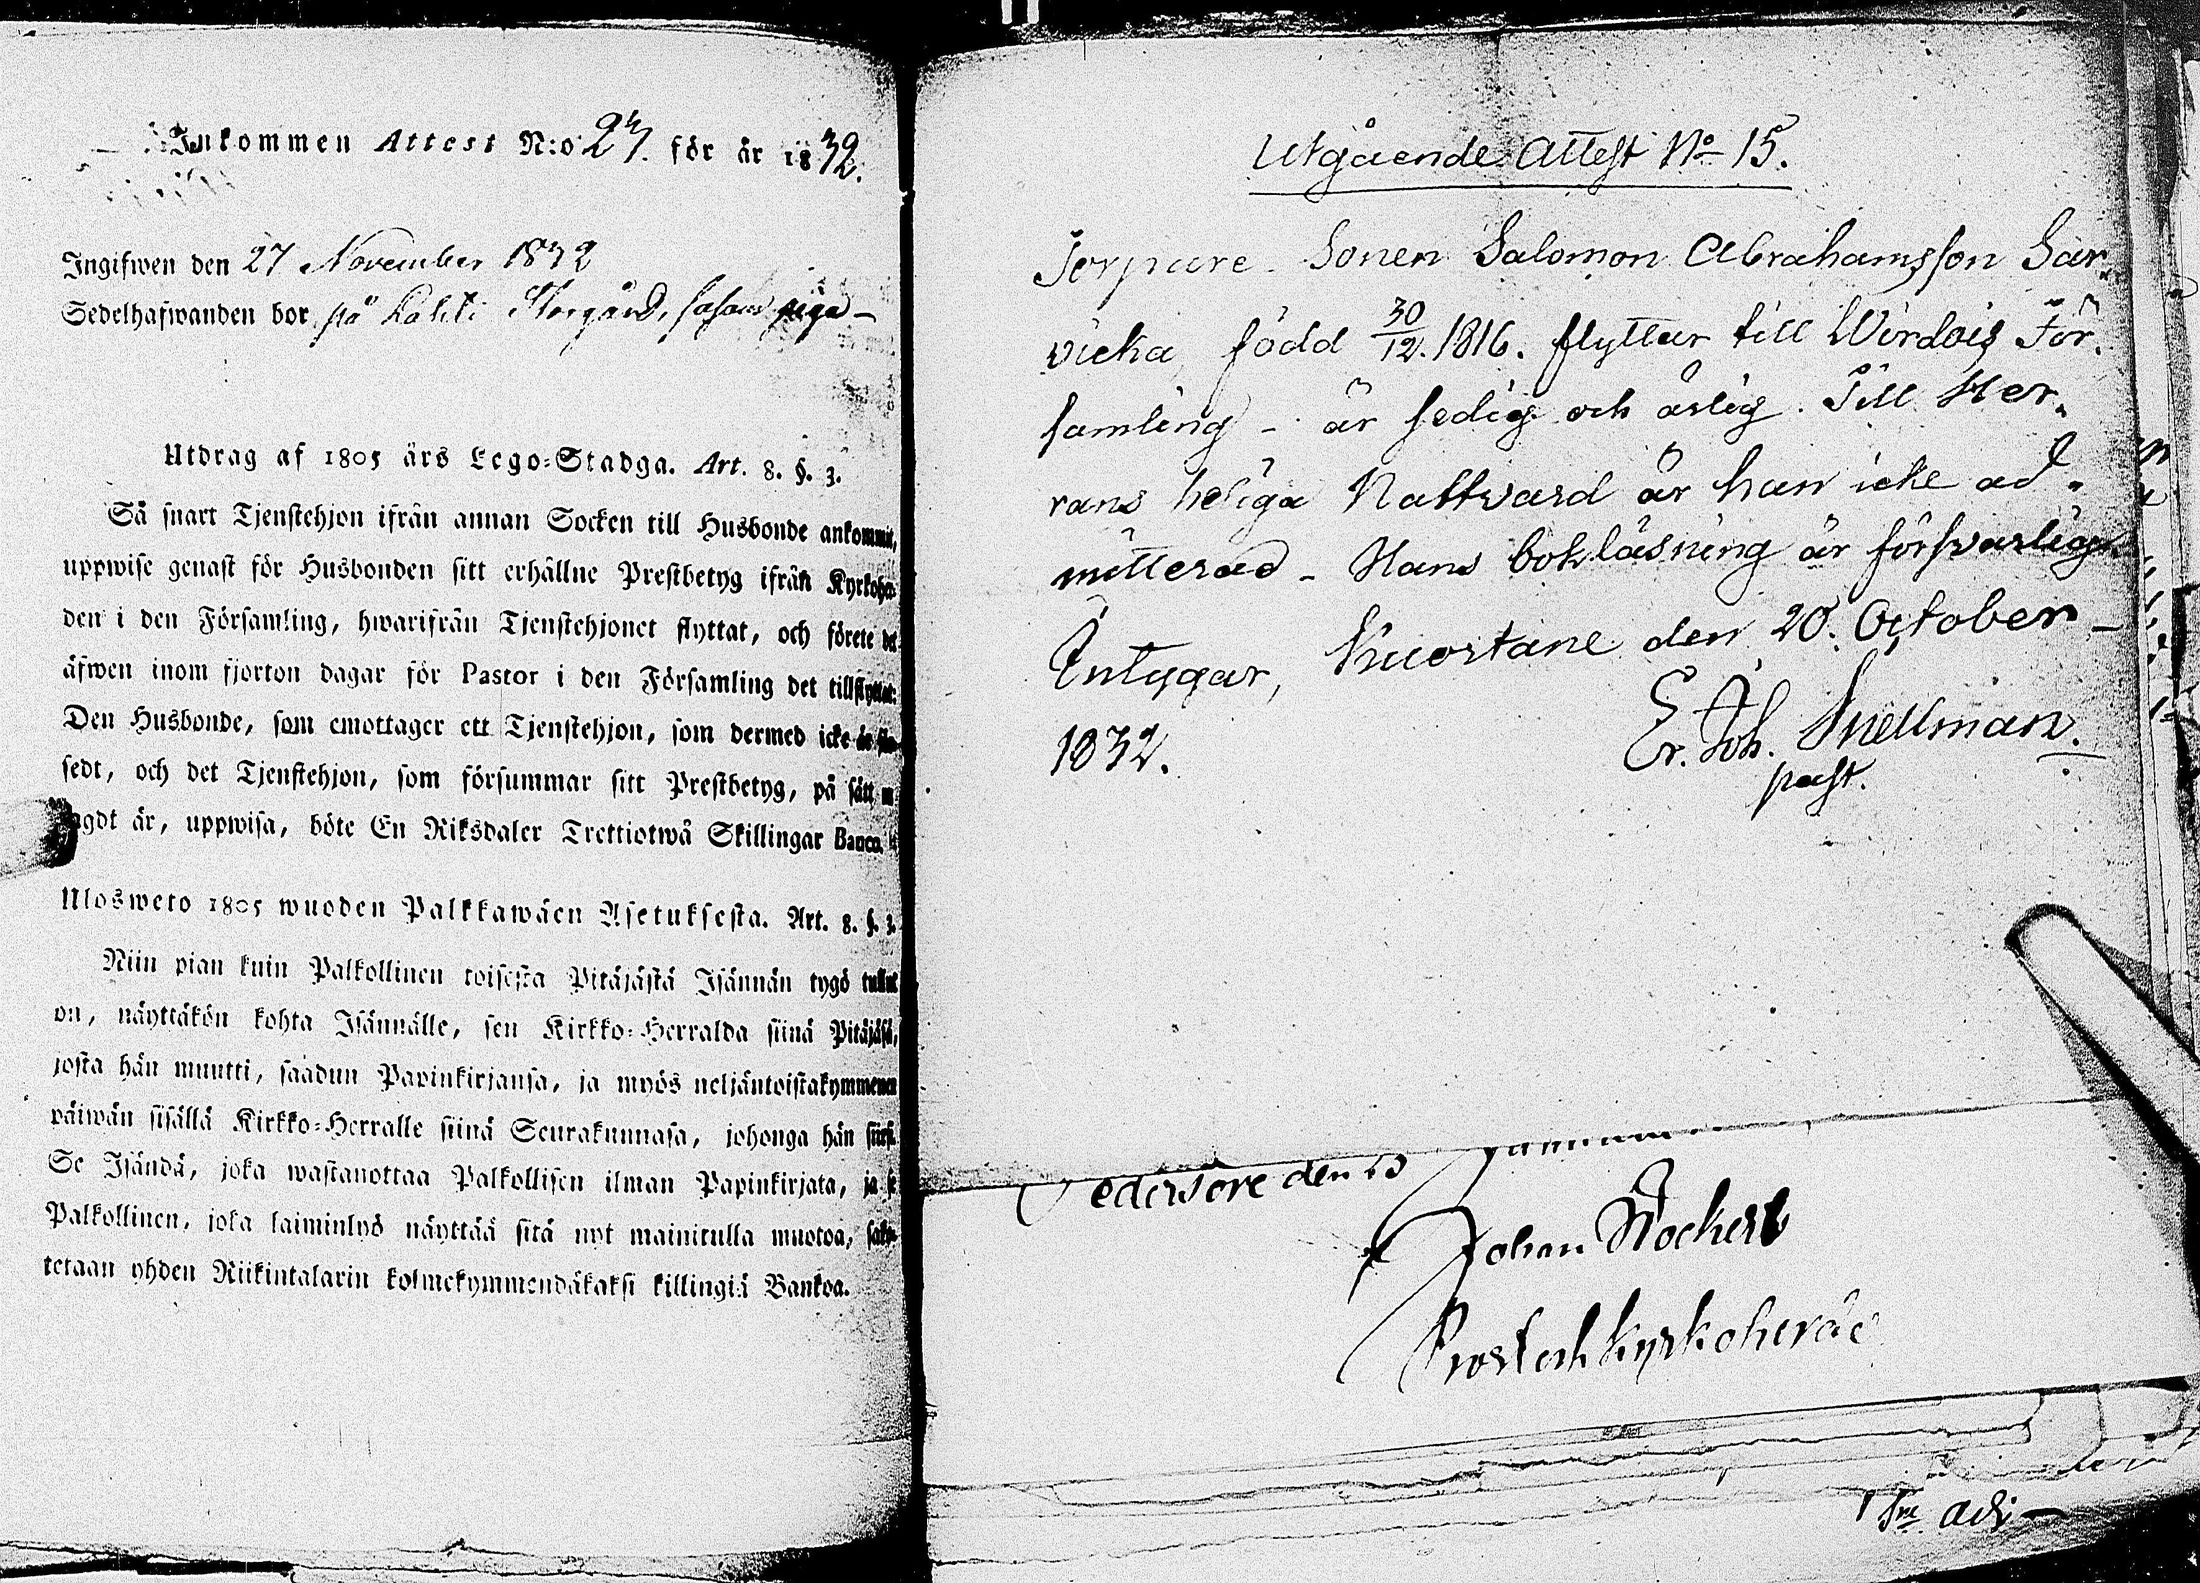 Inkommen Attest N:o 27. för år 1832.
Ingifwen den 27 November 1832
Sedelhafwanden bor på Storgård, såsom piga
Utdrag af 1805 års Lego-Stadga. Art. 8. §. 3.
Så snart Tjenstehjon ifrån annan Socken till Husbonde ankommit,
uppwise genast för Husbonden sitt erhållne Prestbetyg ifrån Kyrkoher-
den i den Församling, hwarifrån Tjenstehjonet flyttat, och förete det
äfwen inom fjorton dagar för Pastor i den Församling det tillflyttat.
Den Husbonde, som emottager ett Tjenstehjon, som dermed icke är för-
sedt, och det Tjenstehjon, som försummar sitt Prestbetyg, på sätt nu
sagdt är, uppwisa, böte En Riksdaler Trettiotwå Skillingar Banco.
Ulosweto 1805 wuoden Palkkawäen Asetuksesta. Art. 8. §. 3.
Niin pian kuin Palkollinen toisesta Pitäjästä Isännän tygö tullut
on, näyttäkön kohta Isännälle, sen Kirkko-Herralda siinä Pitäjäsä,
josta hän muutti, saadun Papinkirjansa, ja myös neljäntoistakymmenen
päiwän sisällä Kirkko-Herralle siinä Seurakunnasa, johonga hän siirsi.
Se Isändä, joka wastanottaa Palkollisen ilman Papinkirjata, ja se
Palkollinen, joka laiminlyö näyttää sitä nyt mainitulla muotoa, sako-
tetaan yhden Riikintalarin kolmekymmendäkaksi killingiä Bankoa.
Utgående Attest No 15.
Torpare Sonen Salomon Abrahamsson Sar-
vicka, född 30/12. 1816. flyttar till Wirdois För-
samling - är sedig och ärlig. Till Her-
rans heliga Nattvard är han icke ad-
mitterad - Hans bokläsning är försvarlig
Intygar, Kuortane den 20. October -
1832.
Er. Joh. Snellman.
past.
Pedersöre den 23
Johan
Prost och Kyrkoherde